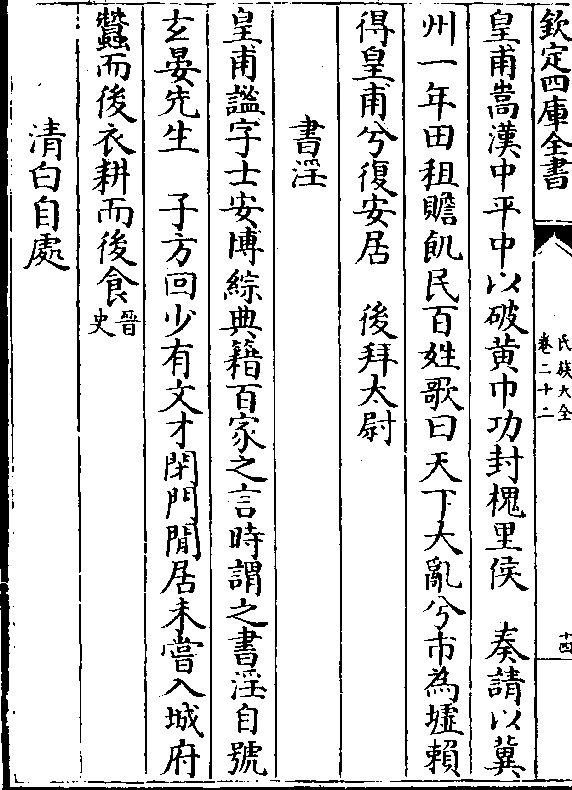 欽定四庫全書
氏族大全
卷二十二
十四
皇甫嵩漢中平中以破黄巾功封槐里侯　奏請以冀
州一年田租贍飢民百姓歌曰天下大亂兮市為墟賴
得皇甫兮復安居　後拜太尉
書淫
皇甫謐字士安博綜典籍百家之言時謂之書淫自號
𤣥晏先生　子方回少有文才閉門閒居未嘗入城府
蠶而後衣耕而後食晉史
清白自處